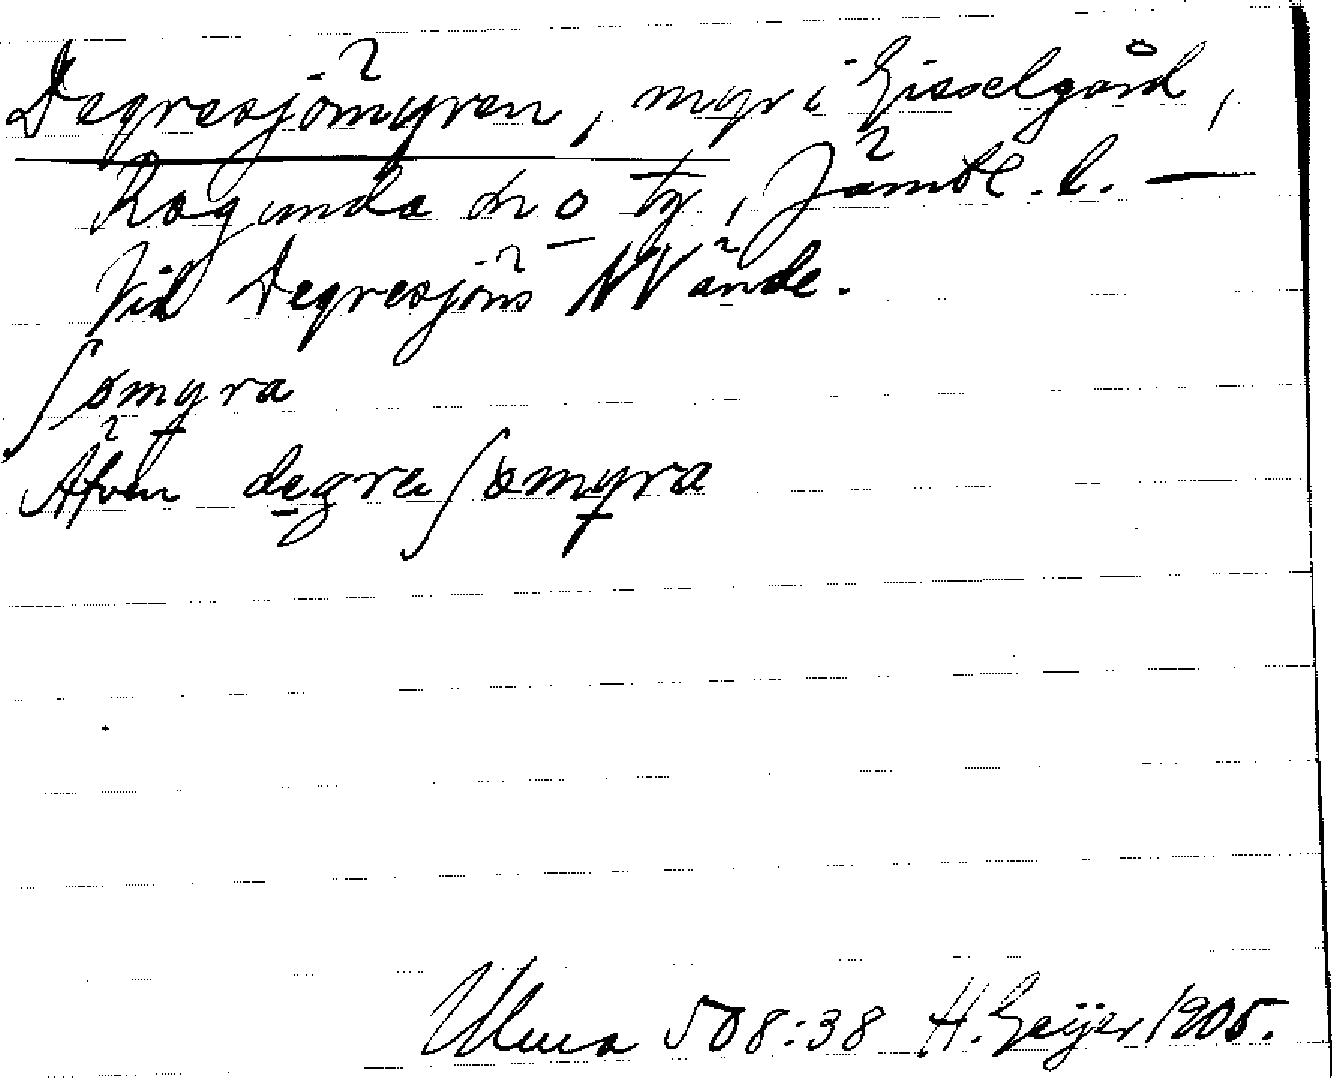 Degresjömyren, myr i Gisselgård,
Ragunda sn o tg, Jämtl. l. —
Vid Degresjöns NV ände.
ʃömyra
Äfven degreʃömyra
Ulma 508:38 H. Geijer 1905.